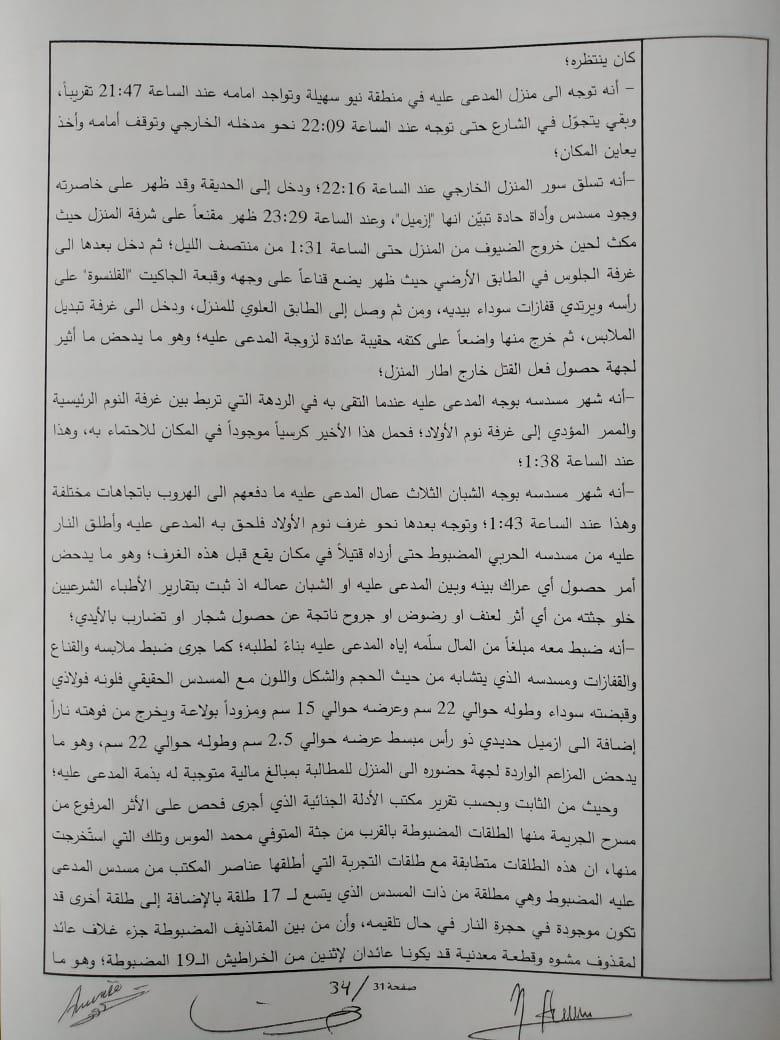 كان ينتظره؛
- أنه توجه الى منزل المدعى عليه في منطقة نيو سهيلة وتواجد امامه عند الساعة 21:47 تقريباً،
وبقي يتجوّل في الشارع حتى توجه عند الساعة 22:09 نحو مدخله الخارجي وتوقف أمامه وأخذ
يعاين المكان؛
-أنه تسلق سور المنزل الخارجي عند الساعة 22:16؛ ودخل إلى الحديقة وقد ظهر على خاصرته
وجود مسدس وأداة حادة تبيّن انها "إزميل"، وعند الساعة 23:29 ظهر مقنعاً على شرفة المنزل حيث
مكث لحين خروج الضيوف من المنزل حتى الساعة 1:31 من منتصف الليل؛ ثم دخل بعدها الى
غرفة الجلوس في الطابق الأرضي حيث ظهر يضع قناعاً على وجهه وقبعة الجاكيت "القلنسوة" على
رأسه ويرتدي قفازات سوداء بيديه، ومن ثم وصل إلى الطابق العلوي للمنزل، ودخل الى غرفة تبديل
الملابس، ثم خرج منها واضعاً على كتفه حقيبة عائدة لزوجة المدعى عليه؛ وهو ما يدحض ما أثير
لجهة حصول فعل القتل خارج اطار المنزل؛
-أنه شهر مسدسه بوجه المدعى عليه عندما التقى به في الردهة التي تربط بين غرفة النوم الرئيسية
والممر المؤدي إلى غرفة نوم الأولاد؛ فحمل هذا الأخير كرسياً موجوداً في المكان للاحتماء به، وهذا
عند الساعة 1:38؛
-أنه شهر مسدسه بوجه الشبان الثلاث عمال المدعى عليه ما دفعهم الى الهروب باتجاهات مختلفة
وهذا عند الساعة 1:43؛ وتوجه بعدها نحو غرف نوم الأولاد فلحق به المدعى عليه وأطلق النار
عليه من مسدسه الحربي المضبوط حتى أرداه قتيلاً في مكان يقع قبل هذه الغرف؛ وهو ما يدحض
أمر حصول أي عراك بينه وبين المدعى عليه او الشبان عماله اذ ثبت بتقارير الأطباء الشرعيين
خلو جثته من أي أثر لعنف او رضوض او جروح ناتجة عن حصول شجار او تضارب بالأيدي؛
-أنه ضبط معه مبلغاً من المال سلّمه إياه المدعى عليه بناءً لطلبه؛ كما جرى ضبط ملابسه والقناع
والقفازات ومسدسه الذي يتشابه من حيث الحجم والشكل واللون مع المسدس الحقيقي فلونه فولاذي
وقبضته سوداء وطوله حوالي 22 سم وعرضه حوالي 15 سم ومزوداً بولاعة ويخرج من فوهته ناراً
إضافة الى ازميل حديدي ذو رأس مبسط عرضه حوالي 2.5 سم وطوله حوالي 22 سم، وهو ما
يدحض المزاعم الواردة لجهة حضوره الى المنزل للمطالبة بمبالغ مالية متوجبة له بذمة المدعى عليه؛
وحيث من الثابت وبحسب تقرير مكتب الأدلة الجنائية الذي أجرى فحص على الأثر المرفوع من
مسرح الجريمة منها الطلقات المضبوطة بالقرب من جثة المتوفي محمد الموس وتلك التي استّخرجت
منها، ان هذه الطلقات متطابقة مع طلقات التجربة التي أطلقها عناصر المكتب من مسدس المدعى
عليه المضبوط وهي مطلقة من ذات المسدس الذي يتسع لـ 17 طلقة بالإضافة إلى طلقة أخرى قد
تكون موجودة في حجرة النار في حال تلقيمه، وأن من بين المقاذيف المضبوطة جزء غلاف عائد
لمقذوف مشوه وقطعة معدنية قد يكونا عائدان لإثنين من الخراطيش الـ19 المضبوطة؛ وهو ما
صفحة 31 / 34